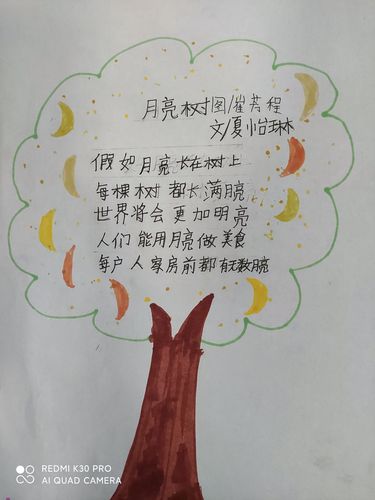 月亮树图/崔芸程
文/夏怡琳
假如月亮长在树上
每棵树都长满月亮
世界将会更加明亮
人们能用月亮做美食
每户人家房前都有无数月亮
REDMI K30 PRO
AI QUAD CAMERA